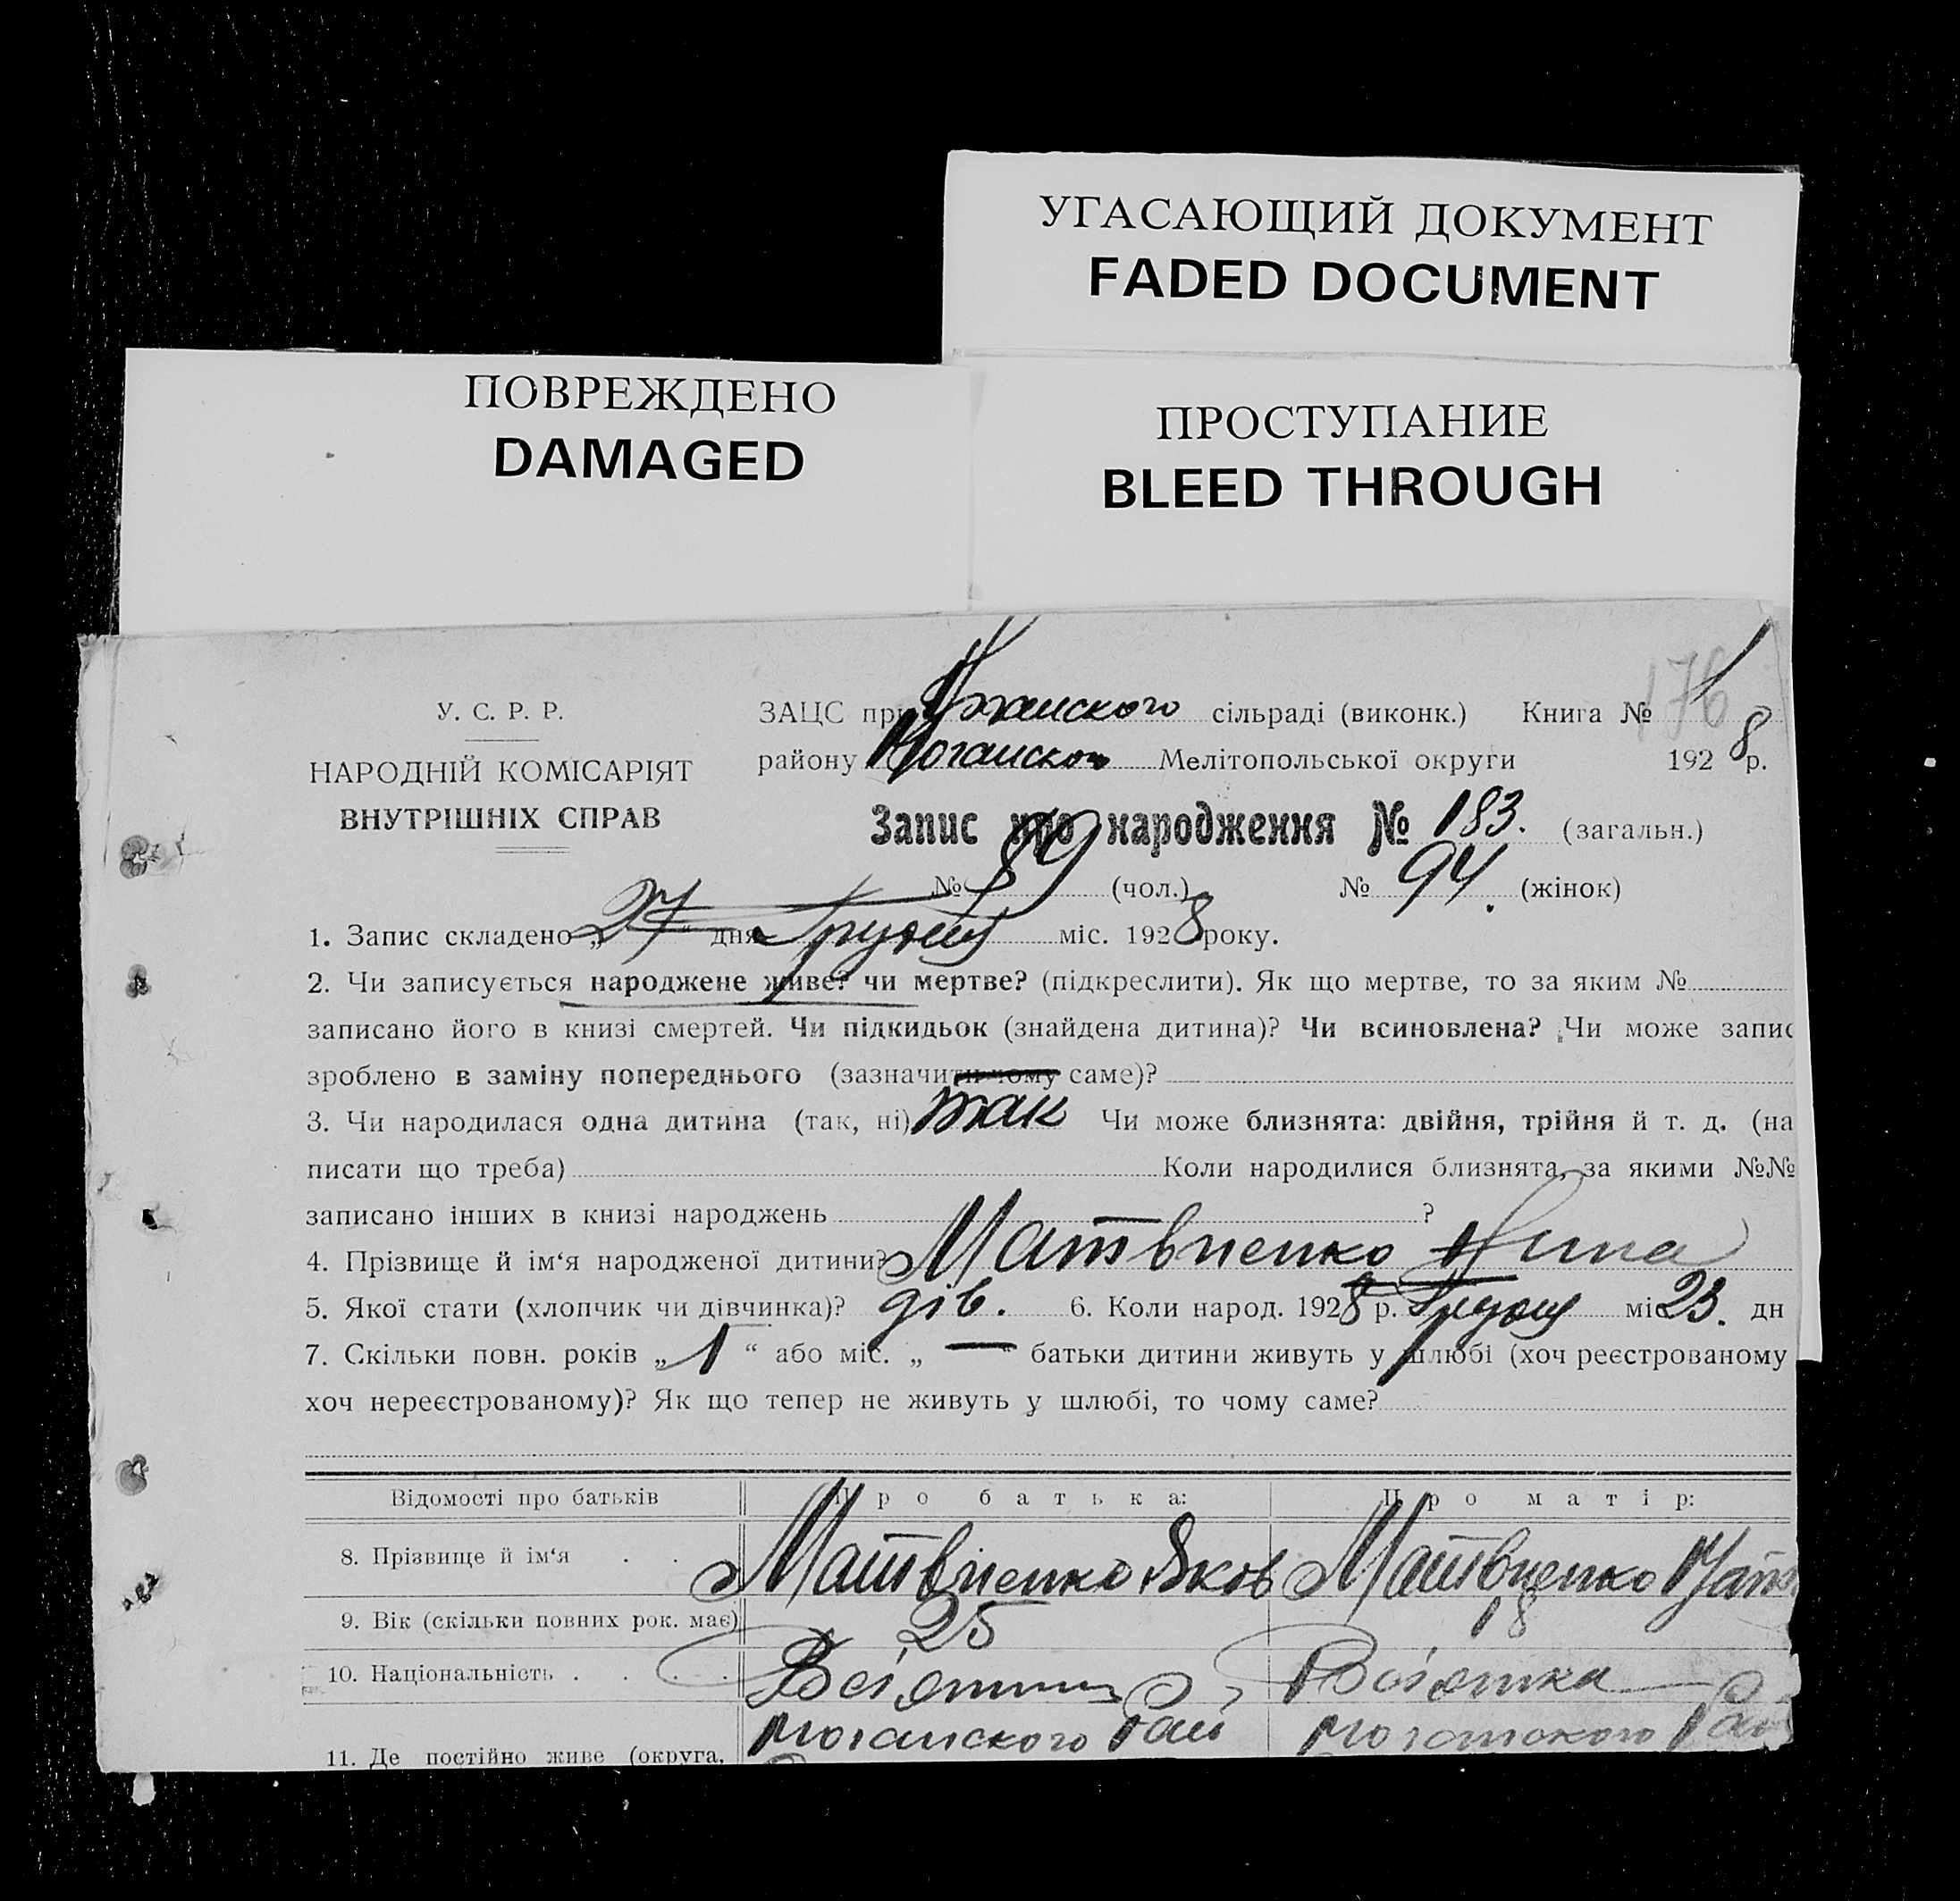 УГАСАЮЩИЙ ДОКУМЕНТ
FADED DOCUMENT
ПОВРЕЖДЕНО
DAMAGED
ПРОСТУПАНИЕ
BLEED THROUGH
176
У. С. Р. Р.
НАРОДНІЙ КОМІСАРІЯТ
ВНУТРІШНІХ СПРАВ
ЗАЦС при сільраді (виконк.) Книга № 1
району Мелітопольської округи 1928 р.
Запис про народження № 183. (загальн.)
№ 89 (чол.) № 94. (жінок)
1. Запис складено „27“ дня Грудня міс. 1928 року.
2. Чи записується народжене живе? чи мертве? (підкреслити). Як що мертве, то за яким №
записано його в книзі смертей. Чи підкидьок (знайдена дитина)? Чи всиновлена? Чи може запис
зроблено в заміну попереднього (зазначити чому саме)?
3. Чи народилася одна дитина (так, ні) так Чи може близнята: двійня, трійня й т. д. (на
писати що треба) Коли народилися близнята, за якими №№
записано інших в книзі народжень — ?
4. Прізвище й ім‘я народженої дитини? Матвиенко Нина
5. Якої стати (хлопчик чи дівчинка)? дів. 6. Коли народ. 1928 р. Грудня міс 23. дн
7. Скільки повн. років „1“ або міс. „—“ батьки дитини живуть у шлюбі (хоч реєстрованому
хоч нереєстрованому)? Як що тепер не живуть у шлюбі, то чому саме?
Відомості про батьків Про батька: Про матір:
8. Прізвище й ім‘я . . Матвиенко Яков Матвиенко
9. Вік (скільки повних рок. має) 25 18
10. Національність . . . .
11. Де постійно живе (округа, Ногайского Рай Ногайского Рай